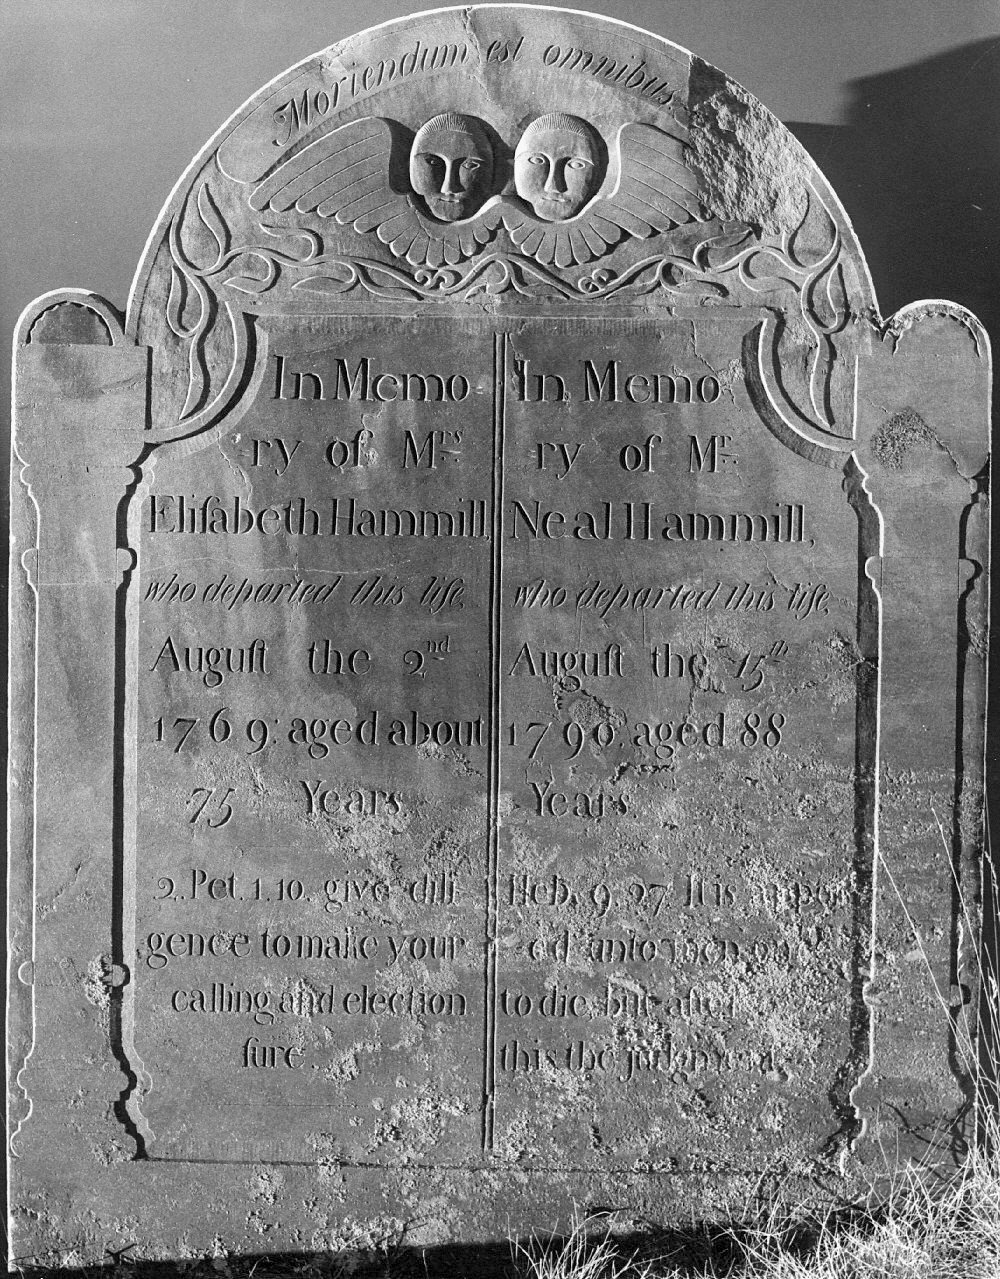 Moriendum est omnibus
In Memo
ry of Mrs
Eliſabeth Hammill,
who departed this life,
Auguſt the 2nd
1769: aged about
75 Years
2. Pet. 1. 10. give dili
gence to make your
calling and election
ſure.
In Memo
ry of Mr
Neal Hammill,
who departed this life,
Auguſt the 15th
1790. aged 88
Years.
Heb. 9. 27 It is appoint
ed unto men once
to die, but after
this the judgment.